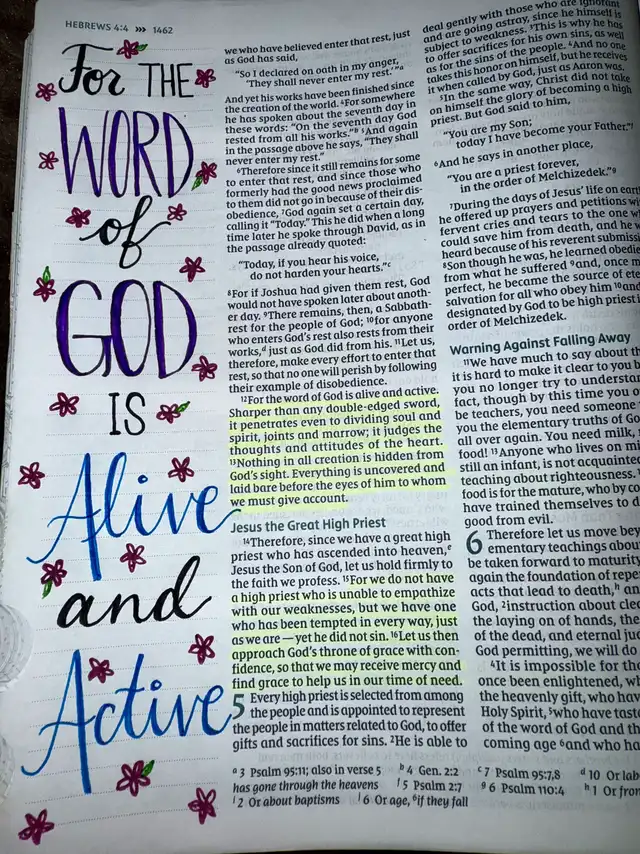 HEBREWS 4:4 ⋙ 1462
For THE
WORD
of
GOD
IS
Alive
and
Active
we who have believed enter that rest, just
as God has said,
“So I declared on oath in my anger,
‘They shall never enter my rest.’”a
And yet his works have been finished since
the creation of the world. 4For somewhere
he has spoken about the seventh day in
these words: “On the seventh day God
rested from all his works.”b 5And again
in the passage above he says, “They shall
never enter my rest.”
6Therefore since it still remains for some
to enter that rest, and since those who
formerly had the good news proclaimed
to them did not go in because of their dis-
obedience, 7God again set a certain day,
calling it “Today.” This he did when a long
time later he spoke through David, as in
the passage already quoted:
“Today, if you hear his voice,
do not harden your hearts.”c
8For if Joshua had given them rest, God
would not have spoken later about anoth-
er day. 9There remains, then, a Sabbath-
rest for the people of God; 10for anyone
who enters God’s rest also rests from their
works,d just as God did from his. 11Let us,
therefore, make every effort to enter that
rest, so that no one will perish by following
their example of disobedience.
12For the word of God is alive and active.
Sharper than any double-edged sword,
it penetrates even to dividing soul and
spirit, joints and marrow; it judges the
thoughts and attitudes of the heart.
13Nothing in all creation is hidden from
God’s sight. Everything is uncovered and
laid bare before the eyes of him to whom
we must give account.
Jesus the Great High Priest
14Therefore, since we have a great high
priest who has ascended into heaven,e
Jesus the Son of God, let us hold firmly to
the faith we profess. 15For we do not have
a high priest who is unable to empathize
with our weaknesses, but we have one
who has been tempted in every way, just
as we are — yet he did not sin. 16Let us then
approach God’s throne of grace with con-
fidence, so that we may receive mercy and
find grace to help us in our time of need.
5 Every high priest is selected from among
the people and is appointed to represent
the people in matters related to God, to offer
gifts and sacrifices for sins. 2He is able to
deal gently with those who are ignorant
and are going astray, since he himself is
subject to weakness. 3This is why he has
to offer sacrifices for his own sins, as well
as for the sins of the people. 4And no one
takes this honor on himself, but he receives
it when called by God, just as Aaron was.
5In the same way, Christ did not take
on himself the glory of becoming a high
priest. But God said to him,
“You are my Son;
today I have become your Father.”f
6And he says in another place,
“You are a priest forever,
in the order of Melchizedek.”g
7During the days of Jesus’ life on earth
he offered up prayers and petitions wi
fervent cries and tears to the one w
could save him from death, and he w
heard because of his reverent submissi
8Son though he was, he learned obedie
from what he suffered 9and, once m
perfect, he became the source of ete
salvation for all who obey him 10and
designated by God to be high priest i
order of Melchizedek.
Warning Against Falling Away
11We have much to say about th
it is hard to make it clear to you b
you no longer try to understan
fact, though by this time you o
be teachers, you need someone
you the elementary truths of Go
all over again. You need milk,
food! 13Anyone who lives on mi
still an infant, is not acquainte
teaching about righteousness.
food is for the mature, who by co
have trained themselves to d
good from evil.
6 Therefore let us move bey
ementary teachings abou
be taken forward to maturity
again the foundation of repe
acts that lead to death,h an
God, 2instruction about cle
the laying on of hands, the
of the dead, and eternal juc
God permitting, we will do
4It is impossible for th
once been enlightened, wh
the heavenly gift, who hav
Holy Spirit, 5who have taste
of the word of God and th
coming age 6and who ha
a 3 Psalm 95:11; also in verse 5 b 4 Gen. 2:2 c 7 Psalm 95:7,8 d 10 Or lab
has gone through the heavens f 5 Psalm 2:7 g 6 Psalm 110:4 h 1 Or fron
i 2 Or about baptisms j 6 Or age, 6if they fall